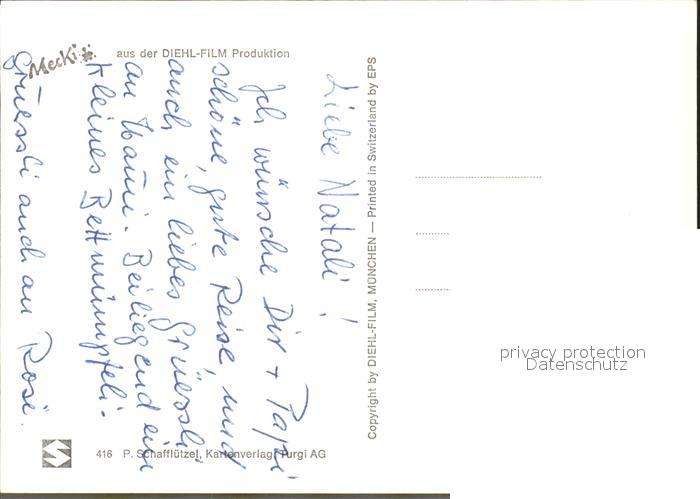 Mecki
aus der DIEHL-FILM Produktion
Liebe Natali!
Ich wünsche Dir + Papi
schöne, gute Reise, und
auch ein liebes Grüessli
an Mami. Beiliegend ein
kleines Bettmümpfeli.
Grüessli auch an Rosi.
Copyright by DIEHL-FILM, MÜNCHEN — Printed in Switzerland by EPS
privacy protection
Datenschutz
416 P. Schafflützel, Kartenverlag, Turgi AG